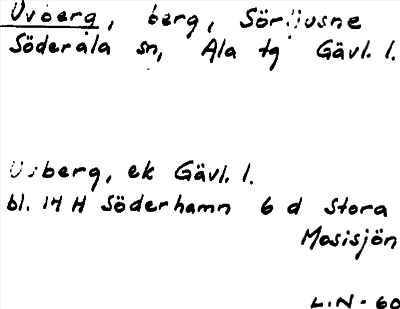 Uvberg, berg, Sörljusne
Söderala sn, Ala tg Gävl. l.
Uvberg, ek Gävl. l.
bl. 14 H Söderhamn 6 d Stora
Mosisjön
L.N - 60